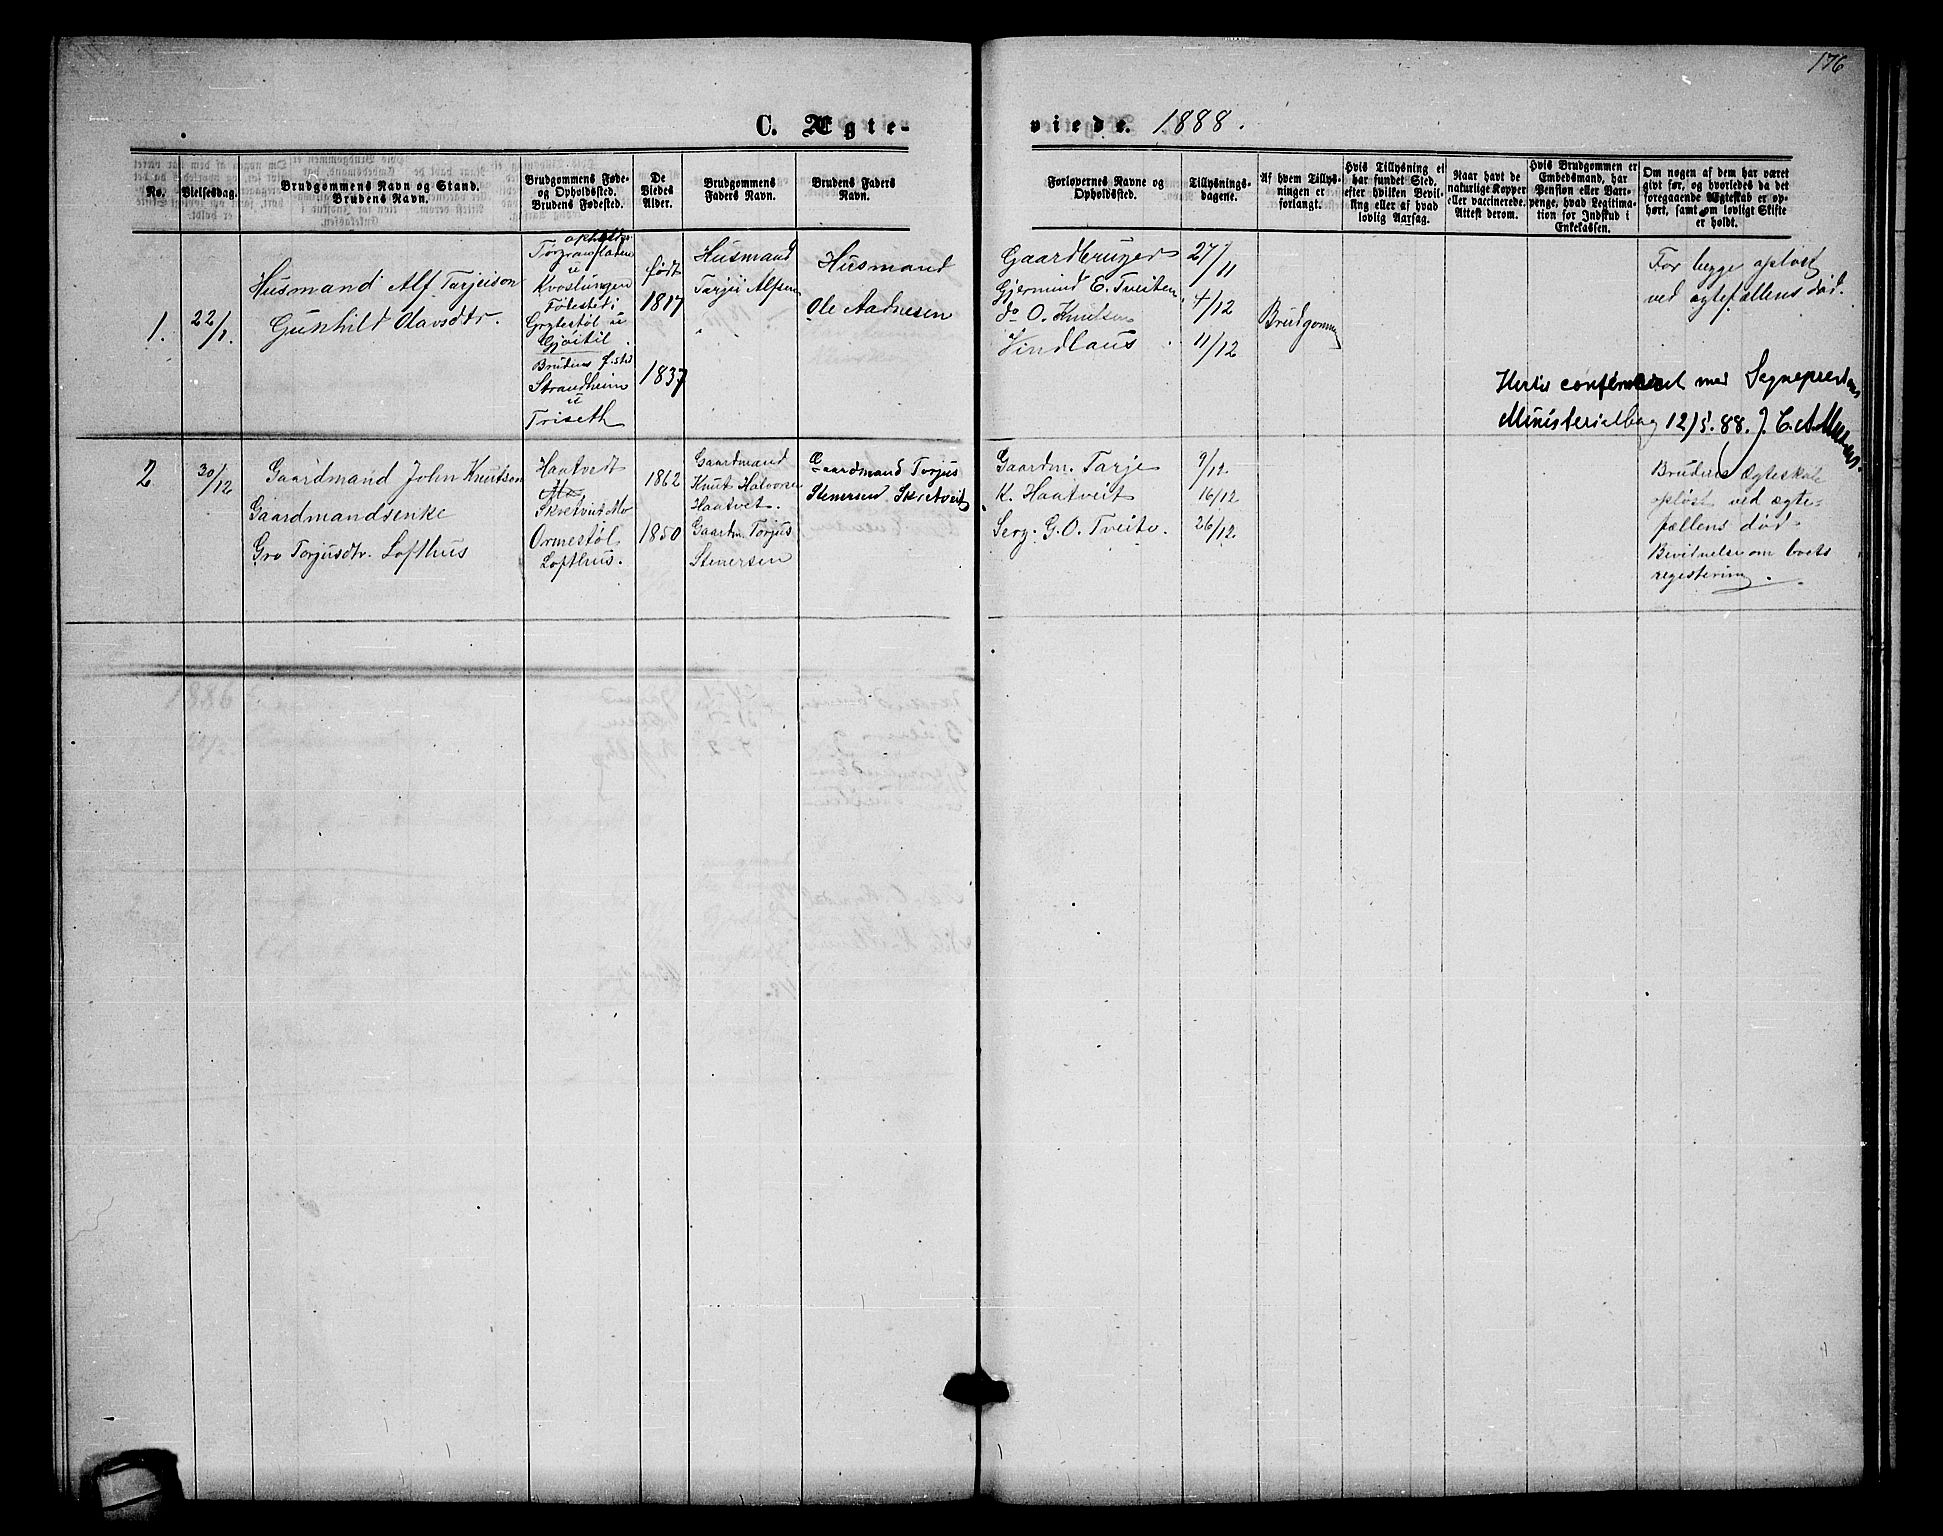 176
C. Ægte-
viede. 1888.
No.
Vielsesdag.
Brudgommens Navn og Stand.
Brudens Navn.
Brudgommens Føde-
og Opholdssted.
Brudens Fødested.
De
Viedes
Alder.
Brudgommens
Faders Navn.
Brudens Faders
Navn.
Forlovernes Navne og
Opholdssted.
Tillysnings-
dagene.
Af hvem Tillys-
ningen er
forlangt.
Hvis Tillysning ei
har fundet Sted,
efter hvilken Bevil-
ling eller af hvad
lovlig Aarsag.
Naar havt de
naturlige Kopper
eller vaccinerede.
Attest derom.
Hvis Brudgommen er
Embedsmand, har
Pension eller Vart-
penge, hvad Legitima-
tion for Indskud i
Enkekassen.
Om nogen af dem har været
givt før, og hvorledes da det
foregaaende Ægteskab er op-
hørt, samt om lovligt Skifte
er holdt.
1.
22/1.
Husmand Alf Tarjeison
Gunhild Olavsdtr.
u
Kvoslungen
Fødested:
Grytestøl u
Brudens f. sted
Strandheim
u
Triseth
født
1817
1837
Husmand
Tarjei Alfsen
Husmand
Ole Aadnesen
Gaardbruger
Gjermund E. Tveiten
do O. Knutsen
Vindlaus
27/11
4/12
11/12
Brudgommen
For begge opløst
ved ægtefællens død.
Hertil confereret med Sognepræstens
Ministerialbog 12/5. 88. J. C.
2.
30/12
Gaardmand John Knutson
Gaardmandsenke
Gro Torjusdtr. Lofthus
Haatvedt
Ormestøl
Lofthus.
1862
1850
Gaardmand
Knut Halvorsen
Haatvet.
Gaardm. Torjus
Stenersen
Gaardmand Torjus
Stenersen Skretveit
Gaardm. Tarje
K. Haatveit
Serg. G. O. Tveito.
9/12.
16/12
26/12.
Brudens Ægteskab
opløst ved ægte-
fællens død.
Bevidnelse om boets
registering.